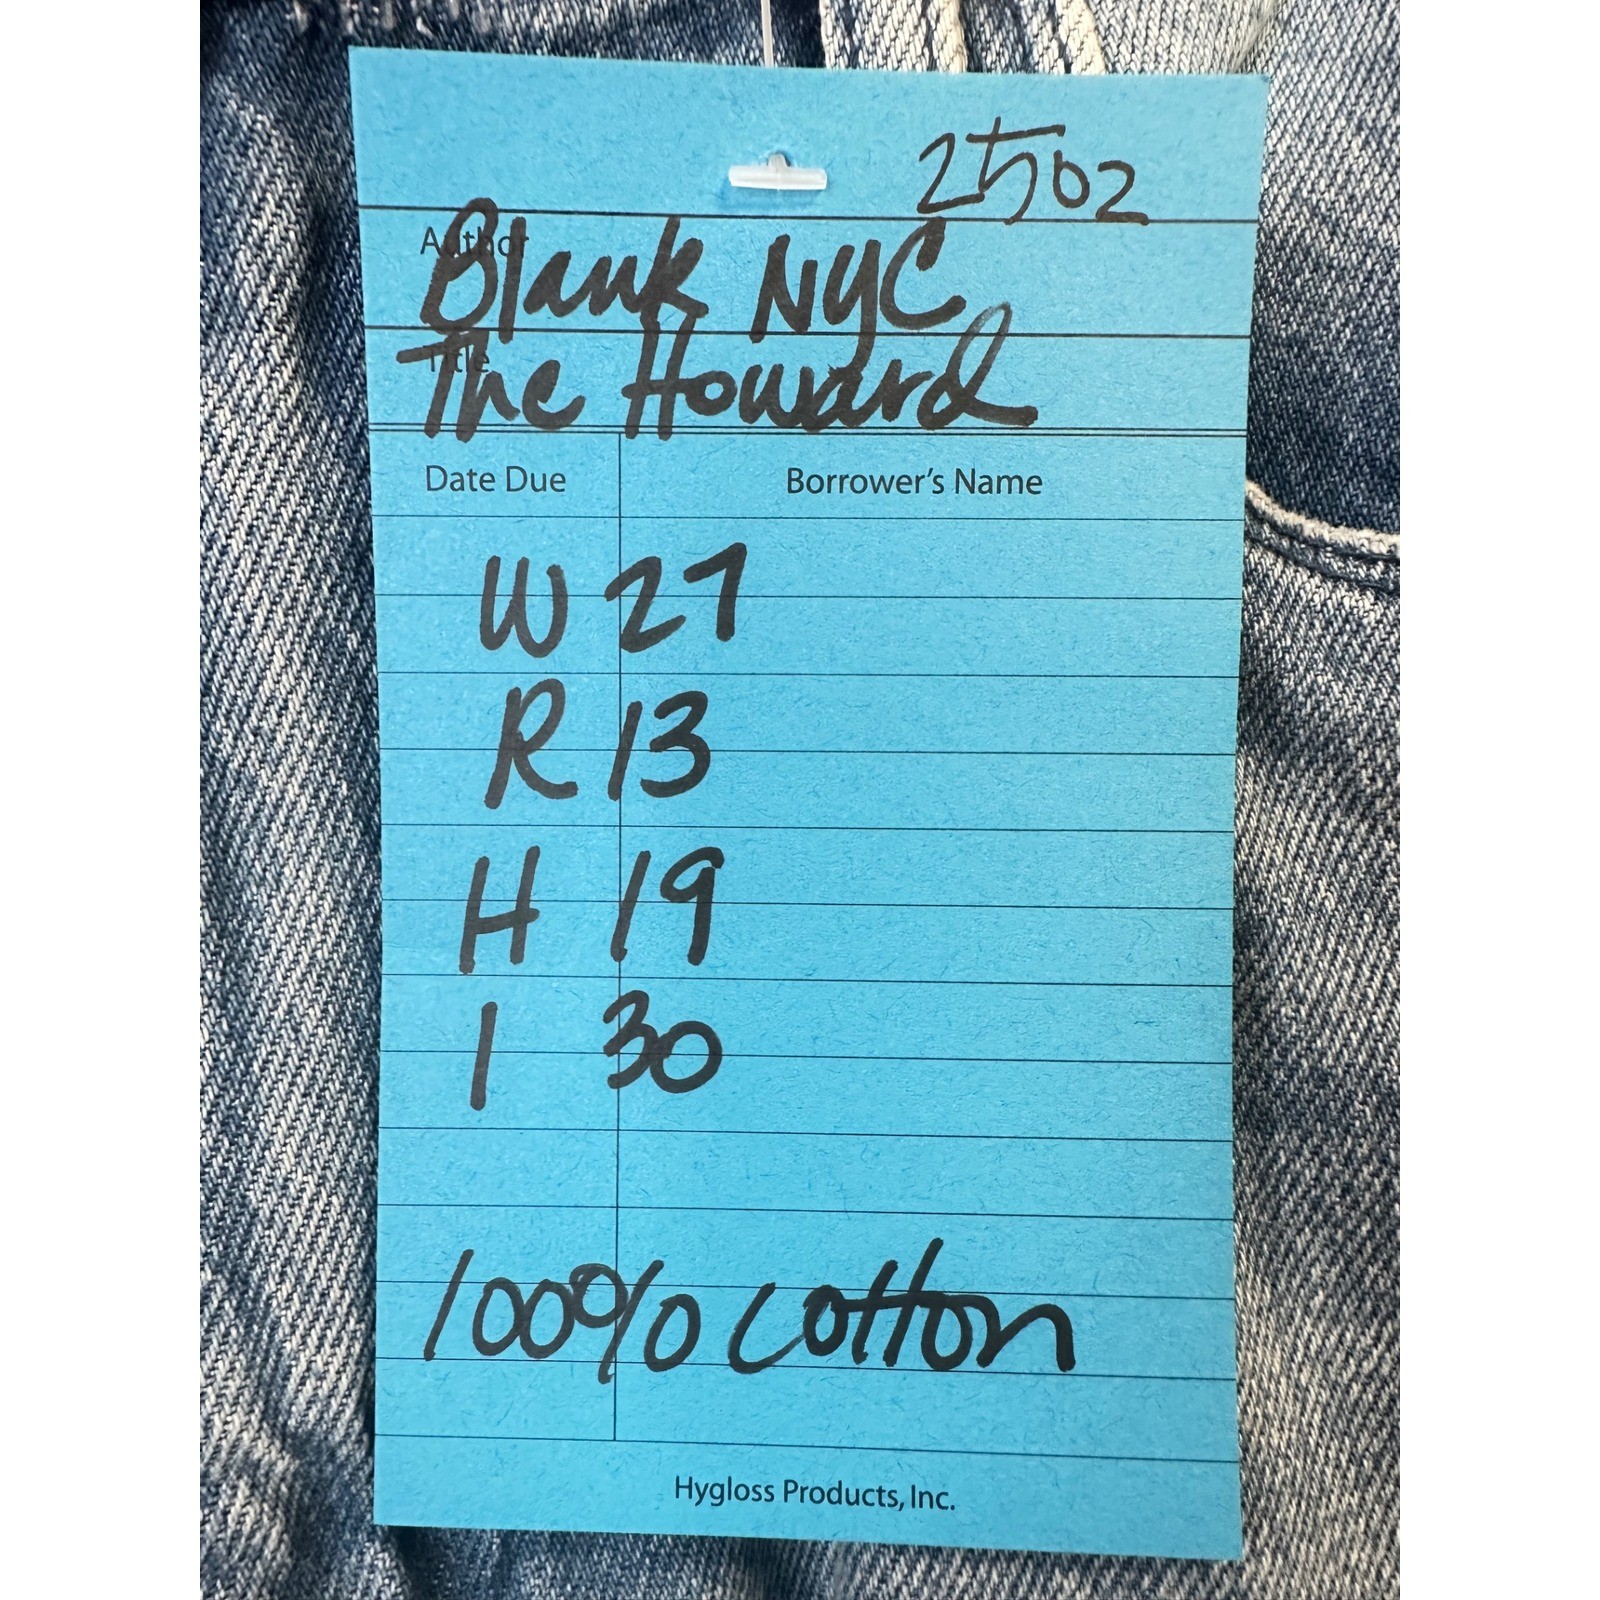 2502
Author
Blank NYC
Title
The Howard
Date Due Borrower's Name
W 27
R 13
H 19
I 30
100% cotton
Hygloss Products, Inc.